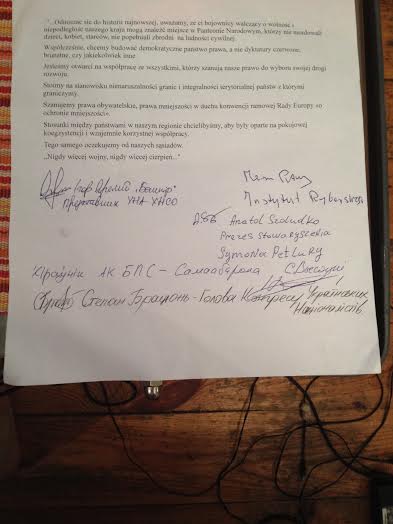 "...Odnosząc się do historii najnowszej, uważamy, że ci bojownicy walczący o wolność i
niepodległość naszego kraju mogą znaleźć miejsce w Panteonie Narodowym, którzy nie mordowali
dzieci, kobiet, starców, nie popełniali zbrodni na ludności cywilnej.
Współcześnie, chcemy budować demokratyczne państwo prawa, a nie dyktatury czerwone,
brunatne, czy jakiekolwiek inne
Jesteśmy otwarci na współpracę ze wszystkimi, którzy szanują nasze prawo do wyboru swojej drogi
rozwoju.
Stoimy na stanowisku nienaruszalności granic i integralności terytorialnej państw z którymi
graniczymy.
Szanujemy prawa obywatelskie, prawa mniejszości w duchu konwencji ramowej Rady Europy «o
ochronie mniejszości».
Stosunki między państwami w naszym regionie chcielibyśmy, aby były oparte na pokojowej
koegzystencji i wzajemnie korzystnej współpracy.
Tego samego oczekujemy od naszych sąsiadów.
„Nigdy więcej wojny, nigdy więcej cierpień..."
Ігор
УНА УНСО
Instytut
Anatol
Prezes Stowarzyszenia
Symona Petlury
АК БПС - Самооборона
Степан Брацюнь - Голова Конгресу Українських
Націоналістів